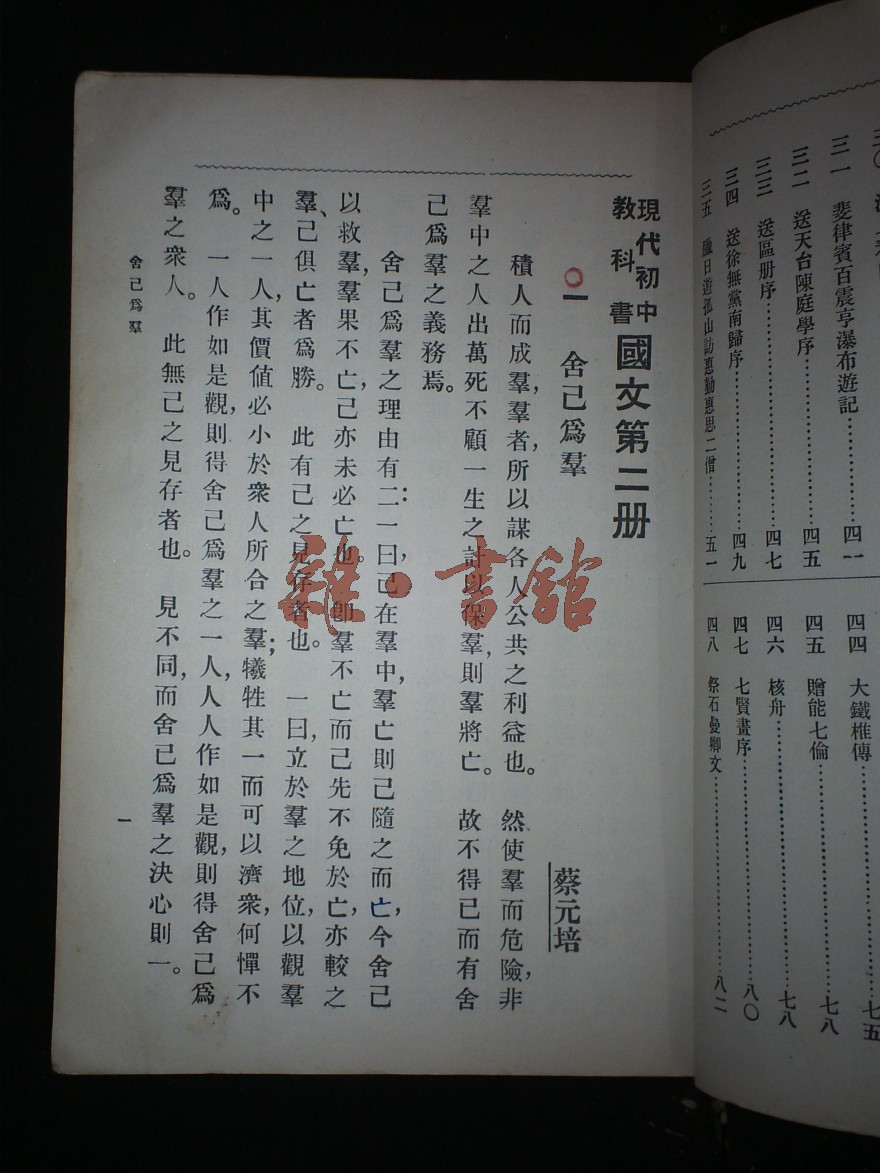 三一 斐律賓百震亨瀑布遊記……四一
三二 送天台陳庭學序……四五
三三 送區册序……四七
三四 送徐無黨南歸序……四九
三五 臘日遊孤山訪惠勤惠思二僧……五一
四四 大鐵椎傳……七五
四五 贈能七倫……七八
四六 核舟……七八
四七 七賢畫序……八〇
四八 祭石曼卿文……八二
現代初中
教科書
國文第二册
一 舍己爲羣
蔡元培
積人而成羣，羣者，所以謀各人公共之利益也。然使羣而危險，非
羣中之人出萬死不顧一生之計以保羣，則羣將亡。故不得已而有舍
己爲羣之義務焉。
舍己爲羣之理由有二：一曰，己在羣中，羣亡則己隨之而亡，今舍己
以救羣，羣果不亡，己亦未必亡也。卽羣不亡而己先不免於亡，亦較之
羣、己俱亡者爲勝。此有己之見存者也。一曰，立於羣之地位，以觀羣
中之一人，其價値必小於衆人所合之羣；犧牲其一而可以濟衆，何憚不
爲。一人作如是觀，則得舍己爲羣之一人，人人作如是觀，則得舍己爲
羣之衆人。此無己之見存者也。見不同，而舍己爲羣之決心則一。
舍己爲羣
一
雜·書館